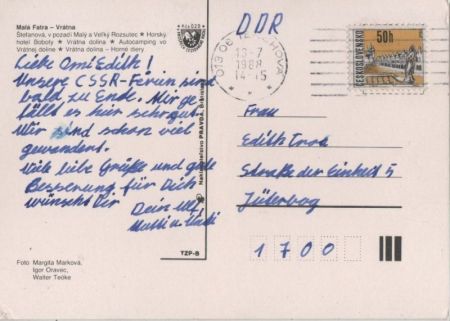 Malá Fatra – Vrátna
Štefanová, v pozadí Malý a Veľký Rozsutec ★ Horský
hotel Boboty ★ Vrátna dolina ★ Autocamping vo
Vrátnej doline ★ Vrátna – Horné diery
Liebe Omi Edith!
Unsere CSSR-Ferien sind
bald zu Ende. Mir ge-
fällt es hier sehr gut.
Wir sind schon viel
gewandert.
Viele liebe Grüße und gute
Besserung für Dich
wünscht Dir
Dein Ulf,
Mutti u. Vati
Foto Margita Marková,
Igor Oravec,
Walter Teöke
TZP-B
PRAVDA,
DDR
18-7
1988
14-15
50h
ČESKOSLOVENSKO
Frau
Edith
Straße der Einheit 5
Jüterbog
1700